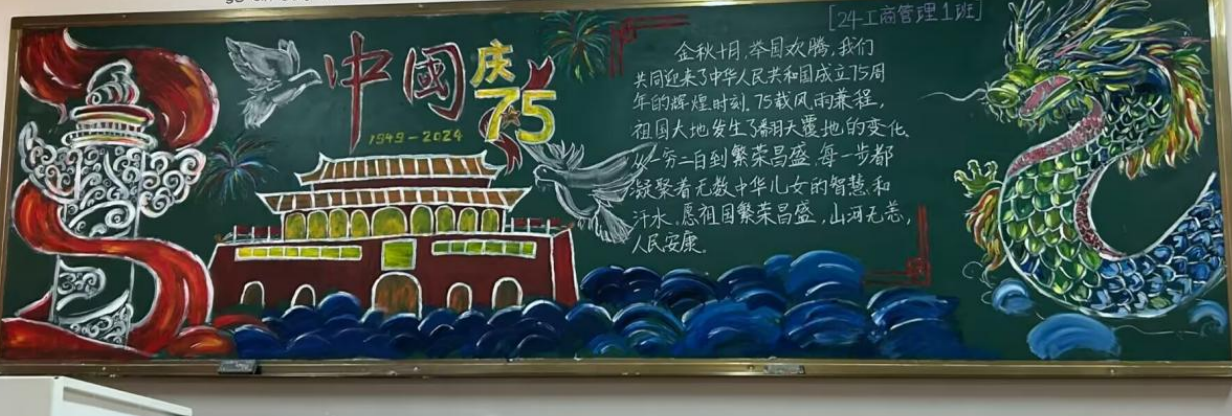 中國
庆
75
1949-2024
[24工商管理1班]
金秋十月,举国欢腾,我们
共同迎来了中华人民共和国成立75周
年的辉煌时刻.75载风雨兼程,
祖国大地发生了翻天覆地的变化.
从一穷二白到繁荣昌盛.每一步都
凝聚着无数中华儿女的智慧和
汗水.愿祖国繁荣昌盛,山河无恙,
人民安康.